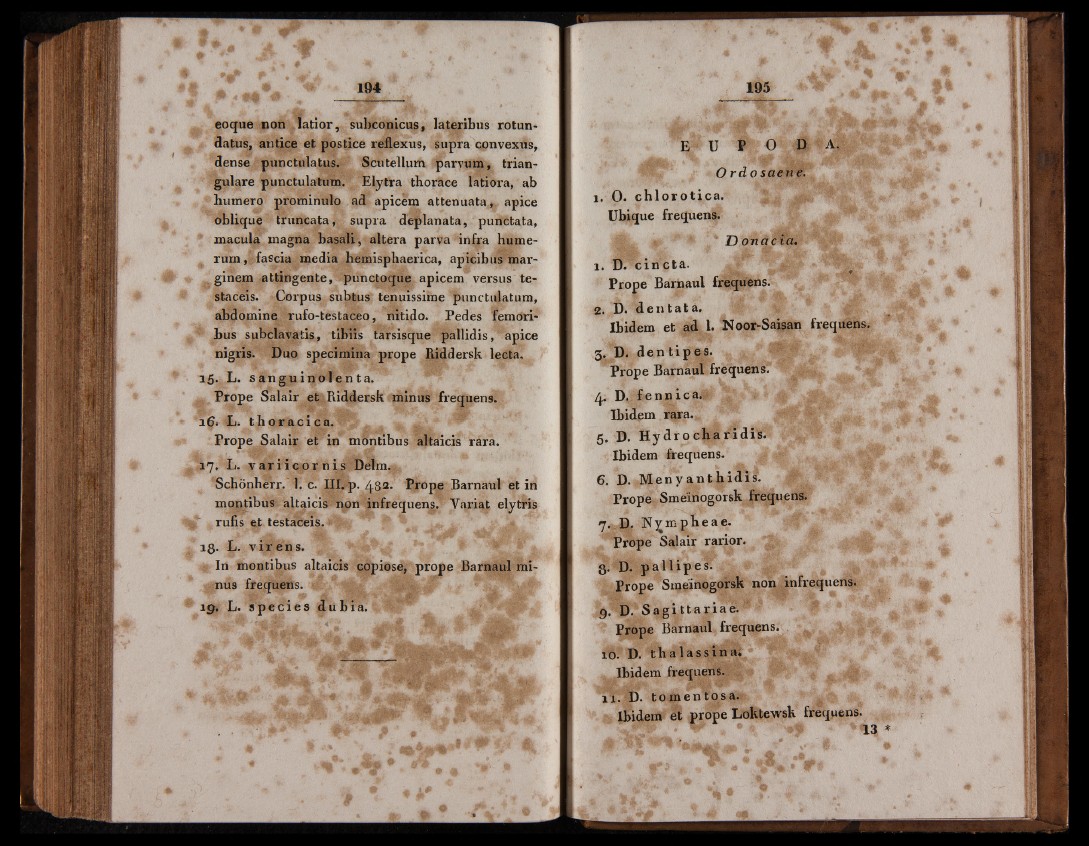 194
eoque non latior, subconicus, lateribus rotun-
datus, antice et postice reflexus, supra convexus,
dense punctulatus. Scutellum parvum, trian-
gulare punctulatum. Elytra thorace latiora, ab
humero prominulo ad apicem attenuata, apice
oblique truncata, supra deplanata, punctata,
macula magna basali, altera parva infra hume-
rum, fascia media hemisphaerica, apicibus mar-
ginem attingente, punctoque apicem versus te-
staceis. Corpus subtus tenuissime punctulatum,
abdomine rufo-testaceo, nitido. Pedes femori-
bus subclavatis, tibiis tarsisque pallidis, apice
nigris. Duo specimina prope Riddersk lecta.
15. L. sanguinolenta.
Prope Salair et Riddersk minus frequens.
16. L. thoracica.
Prope Salair et in montibus altaicis rara.
17. L. variicornis Delm.
Schönherr. l. c. III. p. 482. Prope Barnaul et in
montibus altaicis non infrequens. Variat elytris
rufis et testaceis.
18. L. virens.
In montibus altaicis copiose, prope Barnaul mi-
nus frequens.
19. L. species dubia.
195
EUPODA.
Ordosacne.
1. O. chlorotica.
Ubique frequens.
Donacia.
1. D. cincta.
Prope Barnaul frequens.
2. D. dentata.
Ibidem et ad l. Noor-Saisan frequens.
3. D. dentipes.
Prope Barnaul frequens.
4. D. fennica.
Ibidem rara.
5. D. Hydrocharidis.
Ibidem frequens.
6. D. Menyanthidis.
Prope Smeïnogorsk frequens.
7. D. Nympheae.
Prope Salair rarior.
8. D. pallipes.
Prope Smeïnogorsk non infrequens.
9. D. Sagittariae.
Prope Barnaul frequens.
10. D. thalassina.
Ibidem frequens.
11. D. tomentosa.
Ibidem et prope Loktewsk frequens.
13 *